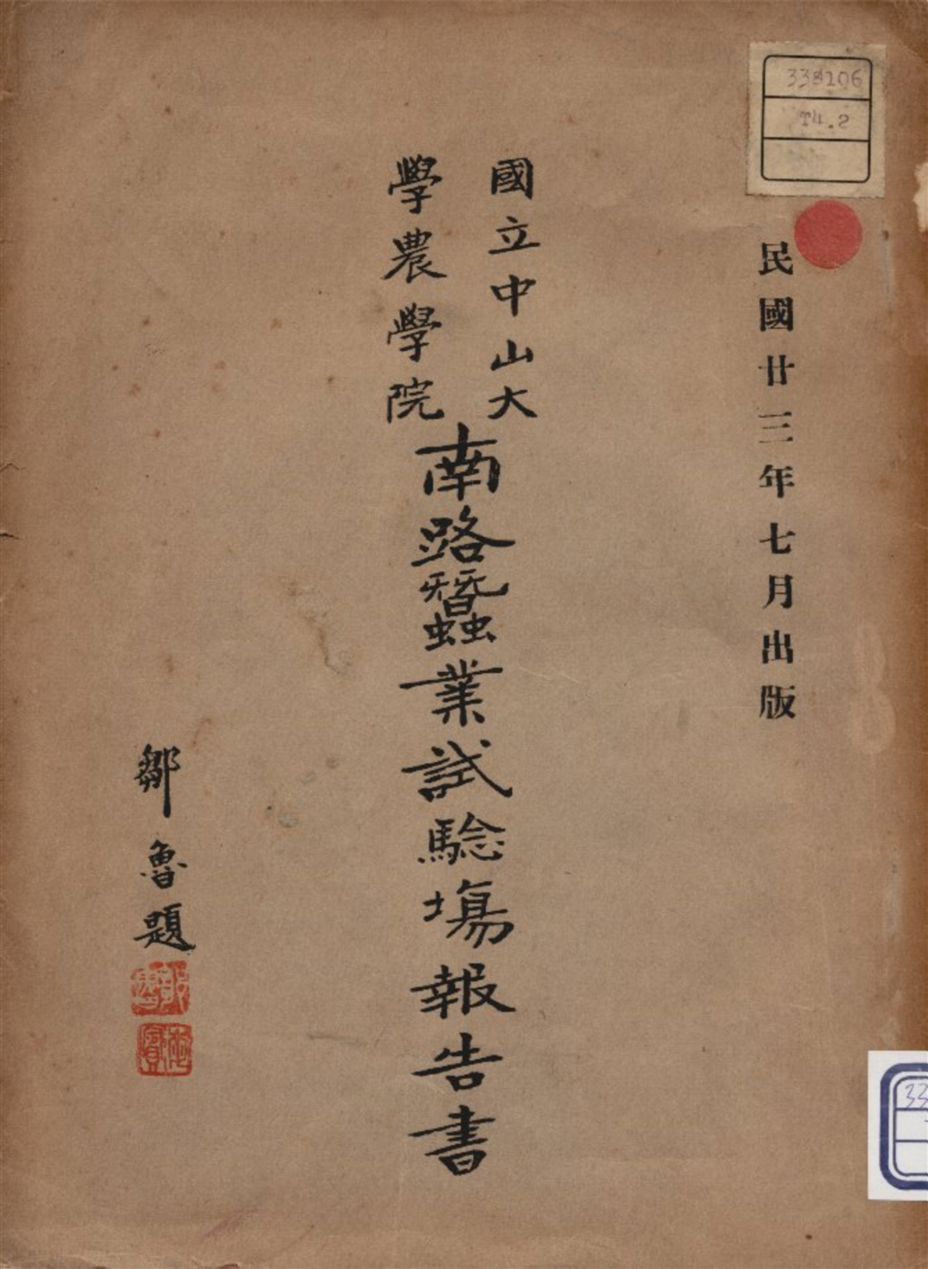 338106
T4.2
民國廿三年七月出版
國立中山大
學農學院
南路蠶業試驗場報告書
鄒魯題
鄒魯
海濱
33